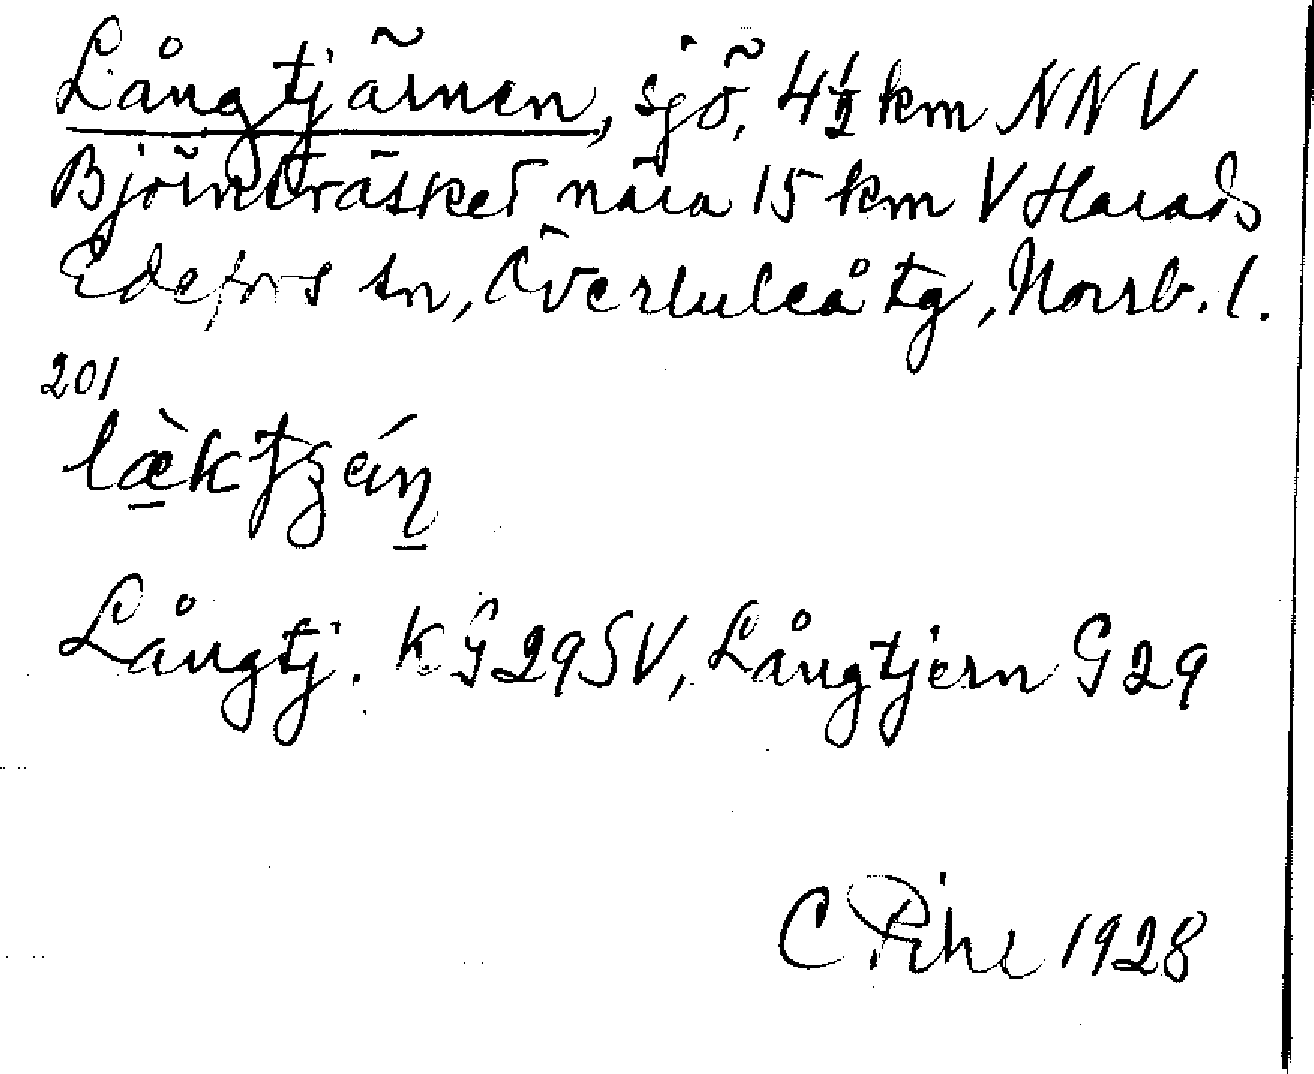 Långtjärnen, sjö, 4½ km NNV
Björnträsket nära 15 km V Harads
Edefors sn, Överluleå tg, Norrb. l.
201
Långtj. K G29SV, Långtjern G29
C Pihl 1928